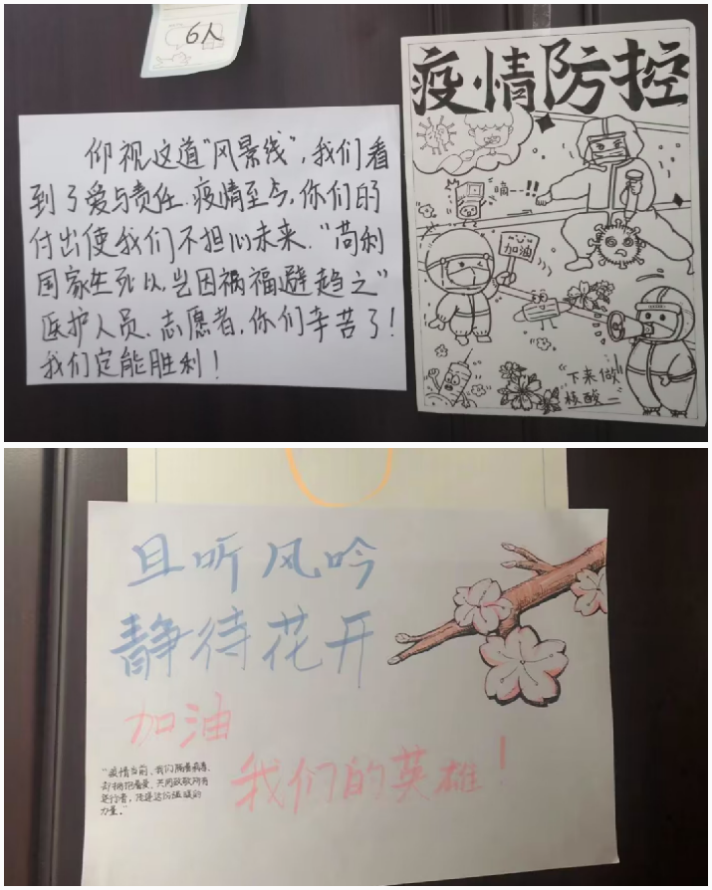 6人
仰视这道“风景线”，我们看
到了爱与责任.疫情至今,你们的
付出使我们不担心未来.“苟利
国家生死以,岂因祸福避趋之”
医护人员、志愿者,你们辛苦了!
我们定能胜利!
疫情防控
嘀——!!
加油
“下来做
核酸—
且听风吟
静待花开
加油
我们的英雄!
“疫情当前,我们隔着病毒,
力量。”